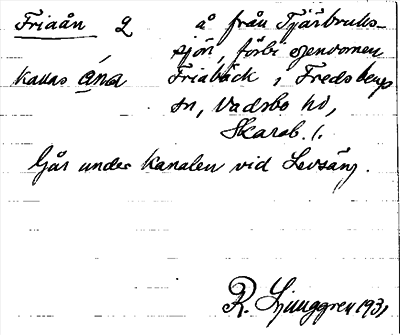 Friaån 2 å från Tjärbruks-
sjön, förbi
kallas åna Friabäck i Fredsbergs
sn, Vadsbo hd,
Skarab. l.
Går under kanalen vid Levsäng.
R. Ljunggren 1931